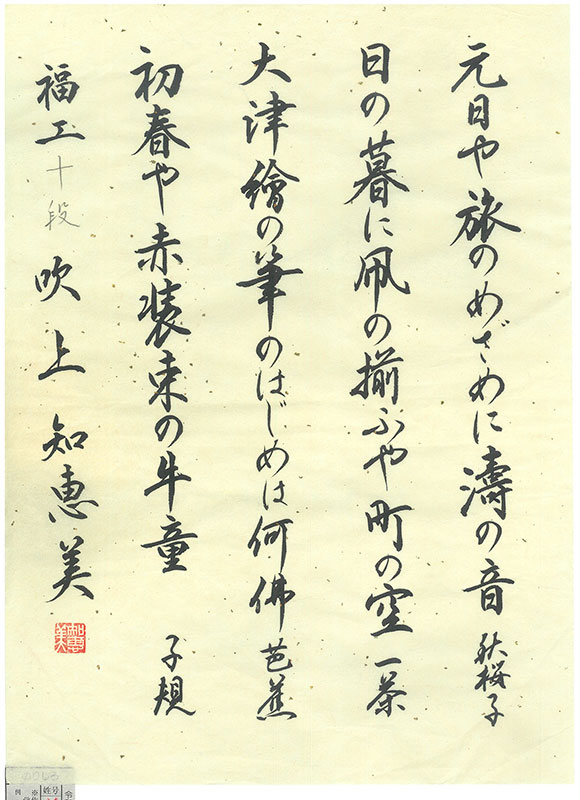 元日や旅のめざめに濤の音 秋桜子
日の暮に凧の揃ふや町の空 一茶
大津繪の筆のはじめは何佛 芭蕉
初春や赤装束の牛童 子規
福工 十段 吹上 知恵美